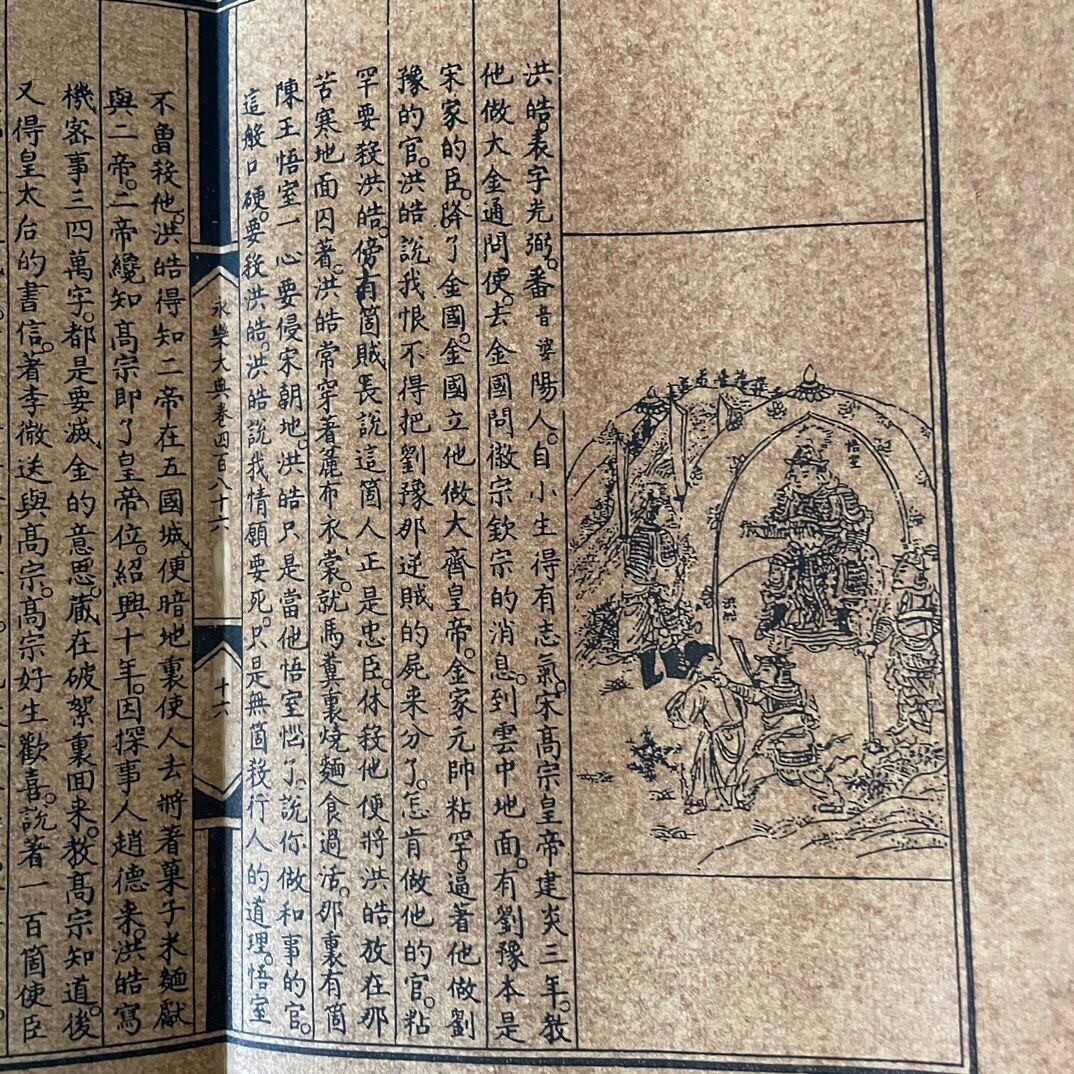 洪皓。表字光弼。番音婆陽人。自小生得有志氣。宋髙宗皇帝建炎三年。教
他做大金通問使。去金國問徽宗欽宗的消息。到雲中地面。有劉豫本是
宋家的臣。降了金國。金國立他做大齊皇帝。金家元帥粘罕。逼著他做劉
豫的官。洪皓說我恨不得把劉豫那逆賊的屍来分了。怎肯做他的官。粘
罕要殺洪皓。傍有箇賊長說這箇人正是忠臣。休殺他便將洪皓放在那
苦寒地面囚著。洪皓常穿著麄布衣裳。就馬糞裏燒麵食過活。那裏有箇
陳王悟室一心要侵宋朝地。洪皓只是當他悟室惱了。說你做和事的官。
這般口硬。要殺洪皓。洪皓說我情願要死。只是無箇殺行人的道理。悟室
永樂大典卷四百八十六
十六
不曾殺他。洪皓得知二帝在五國城。便暗地裏使人去將著菓子米麵獻
與二帝。二帝纔知髙宗即了皇帝位。紹興十年。因探事人趙德来。洪皓寫
機密事三四萬字。都是要滅金的意思。蔵在破絮裏囬来。教髙宗知道。後
又得皇太后的書信。著李微送與髙宗。髙宗好生歡喜。說著一百箇使臣
悟室
洪皓